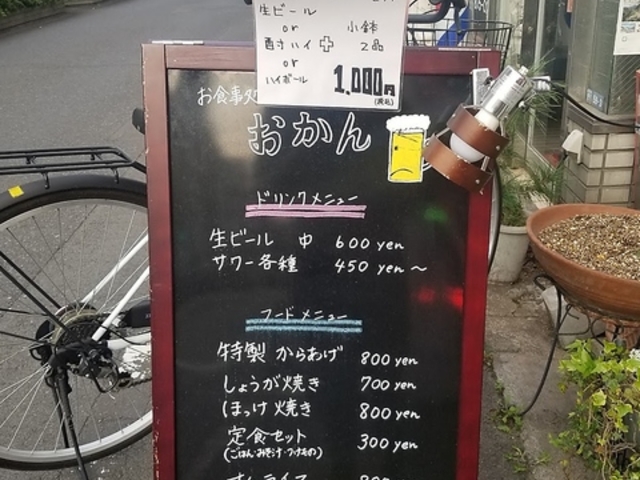 生ビール
or
酎ハイ
or
ハイボール
+
小鉢
2品
1,000円
(税込)
お食事処
おかん
ドリンクメニュー
生ビール 中 600 yen
サワー各種 450 yen ～
フードメニュー
特製 からあげ 800 yen
しょうが焼き 700 yen
ほっけ焼き 800 yen
定食セット 300 yen
(ごはん・みそ汁・つけもの)